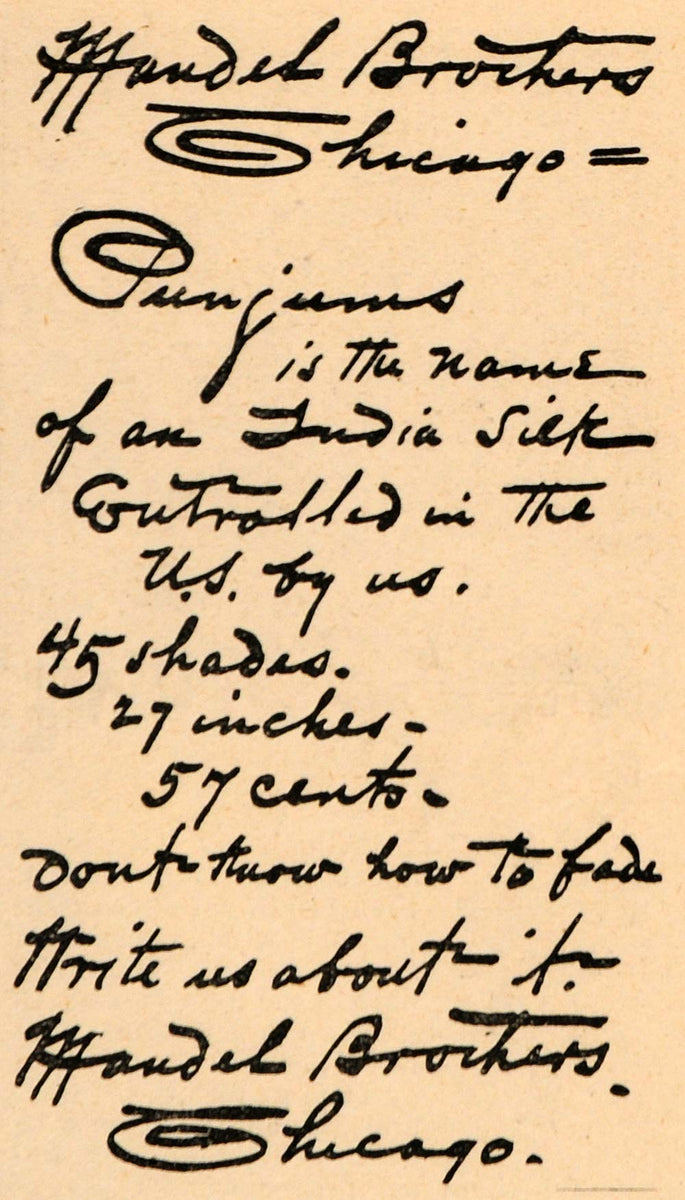 Mandel Brothers
Chicago =
Punjums
is the name
of an India Silk
Controlled in the
U.S. by us.
45 shades.
27 inches -
57 cents -
Dont know how to fade
Write us about it.
Mandel Brothers.
Chicago.